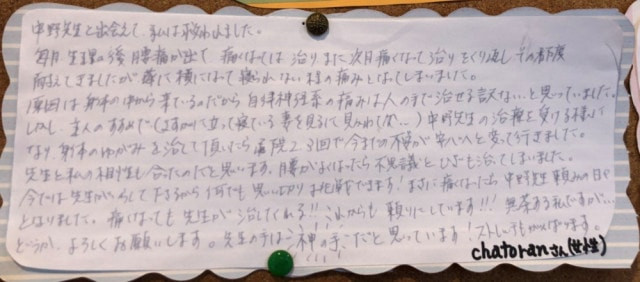 中野先生と出会えて、私は救われました。
毎月生理の後腰痛が出て、痛くなっては治りまた次月痛くなって治りをくり返しその都度
耐えてきましたが 横になって寝られない程の痛みとなってしまいました。
原因は 中から来ているのだから自律神経系の痛みは人の手で治せる訳ないと思っていました。
しかし、主人のすすめで(さすがに立って寝ている妻を見るに見かねてか…)中野先生の治療を受ける様に
なり、 ゆがみを治して頂いたら 2回で今までの不安が安心へと変って行きました。
先生と私の相性も合ったのだと思います。腰がよくなったら不思議とひざも治ってしまいました。
今では先生がいらして下さるから何でも思い切りお仕事できます!まさに痛くなったら中野先生頼みの日々
となりました。痛くなっても先生が治してくれる!!これからも頼りにしています!!!無茶ある私ですが…
どうか、よろしくお願いします。先生の手は"神の手"だと思っています!ストレッチもがんばります。
chatoranさん(女性)